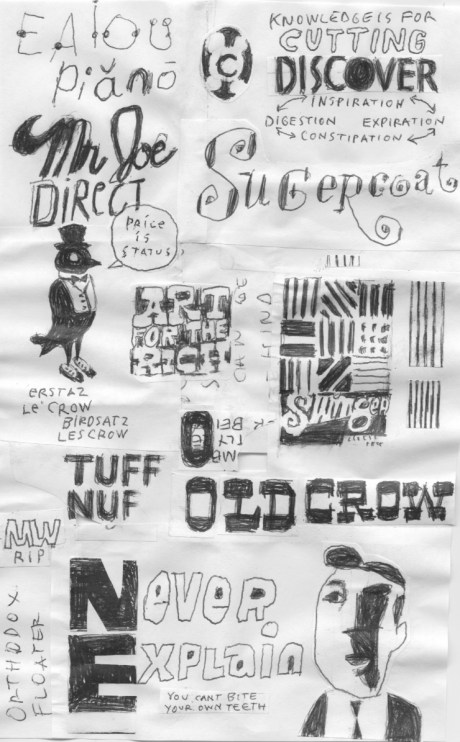 EAIOU
piănō
C
KNOWLEDGE IS FOR
CUTTING
DISCOVER
INSPIRATION
DIGESTION EXPIRATION
CONSTIPATION
Mr Joe
DIRECT
Sugercoat
PRICE
IS
STATUS
ART
FOR THE
RICH
ERSTAZ
LE'CROW
BIRDSATZ
LESCROW
Swinger
TUFF
NUF
OLD CROW
MW
RIP
ORTHODOX
FLOATER
Never
Explain
YOU CANT BITE
YOUR OWN TEETH